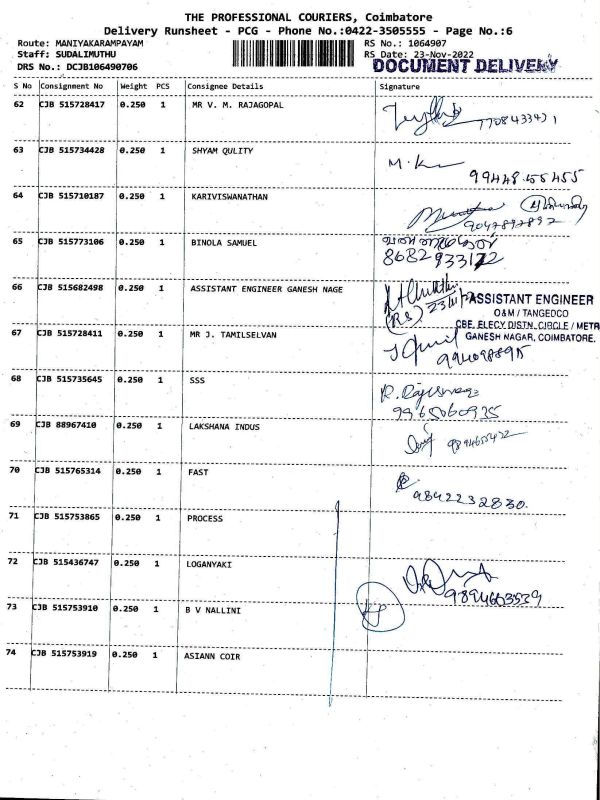 THE PROFESSIONAL COURIERS, Coimbatore
Delivery Runsheet - PCG - Phone No.:0422-3505555 - Page No.:6
Route: MANIYAKARAMPAYAM
RS No.: 1064907
Staff: SUDALIMUTHU
RS Date: 23-Nov-2022
DRS No.: DCJB106490706
DOCUMENT DELIVERY
S No Consignment No Weight PCS Consignee Details Signature
62 CJB 515728417 0.250 1 MR V. M. RAJAGOPAL
63 CJB 515734428 0.250 1 SHYAM QULITY
99448 55455
64 CJB 515710187 0.250 1 KARIVISWANATHAN
9047897892
65 CJB 515773106 0.250 1 BINOLA SAMUEL
8682 933172
66 CJB 515682498 0.250 1 ASSISTANT ENGINEER GANESH NAGE
ASSISTANT ENGINEER
O&M / TANGEDCO
CBE. ELECY DISTN. CIRCLE / METR
GANESH NAGAR, COIMBATORE.
67 CJB 515728411 0.250 1 MR J. TAMILSELVAN
68 CJB 515735645 0.250 1 SSS
9965060935
69 CJB 88967410 0.250 1 LAKSHANA INDUS
70 CJB 515765314 0.250 1 FAST
9842232830
71 CJB 515753865 0.250 1 PROCESS
72 CJB 515436747 0.250 1 LOGANYAKI
9894663539
73 CJB 515753910 0.250 1 B V NALLINI
74 CJB 515753919 0.250 1 ASIANN COIR